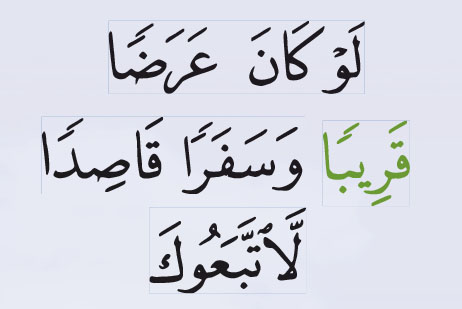 لَوۡ كَانَ عَرَضٗا
قَرِيبٗا وَسَفَرٗا قَاصِدٗا
لَّٱتَّبَعُوكَ